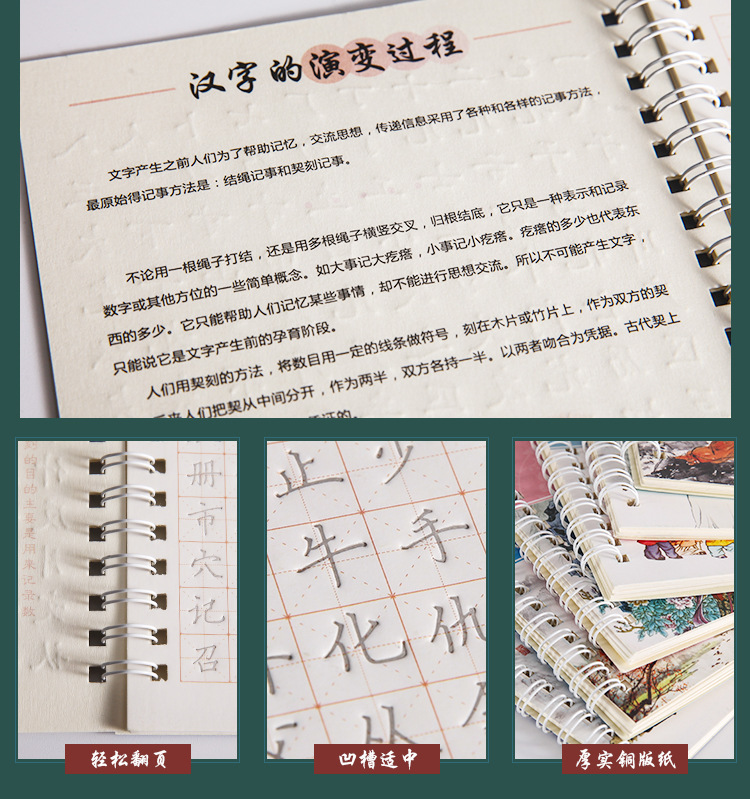 汉字的演变过程
文字产生之前人们为了帮助记忆，交流思想，传递信息采用了各种和各样的记事方法，
最原始得记事方法是：结绳记事和契刻记事。
不论用一根绳子打结，还是用多根绳子横竖交叉，归根结底，它只是一种表示和记录
数字或其他方位的一些简单概念。如大事记大疙瘩，小事记小疙瘩。疙瘩的多少也代表东
西的多少。它只能帮助人们记忆某些事情，却不能进行思想交流。所以不可能产生文字，
只能说它是文字产生前的孕育阶段。
人们用契刻的方法，将数目用一定的线条做符号，刻在木片或竹片上，作为双方的契
后来人们把契从中间分开，作为两半，双方各持一半。以两者吻合为凭据。古代契上
的目的主要是用来记录
册
市
穴
记
召
止少
牛手
化仇
轻松翻页
凹槽适中
厚实铜版纸